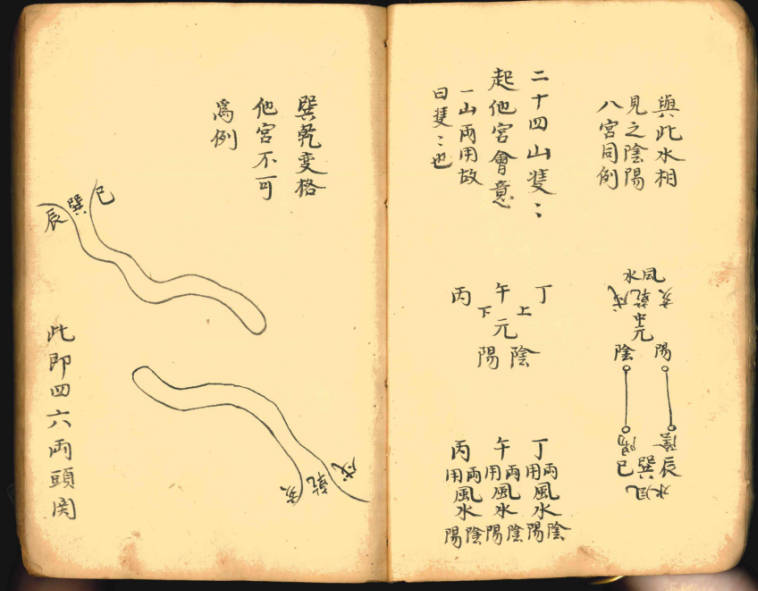 與此水相
見之陰陽
八宮同例
水風
戌乾亥
中元
陰 陽
陽 陰
巳巽辰
水風
二十四山雙〻
起他宮會意
一山兩用故
曰雙〻也
丙 午 丁
下 上
元
陽 陰
丁
兩用
風水
陰陽
午
兩用
風水
陰陽
丙
兩用
風水
陰陽
巽乾変格
他宮不可
爲例
辰巽巳
亥乾戌
此即四六兩頭関